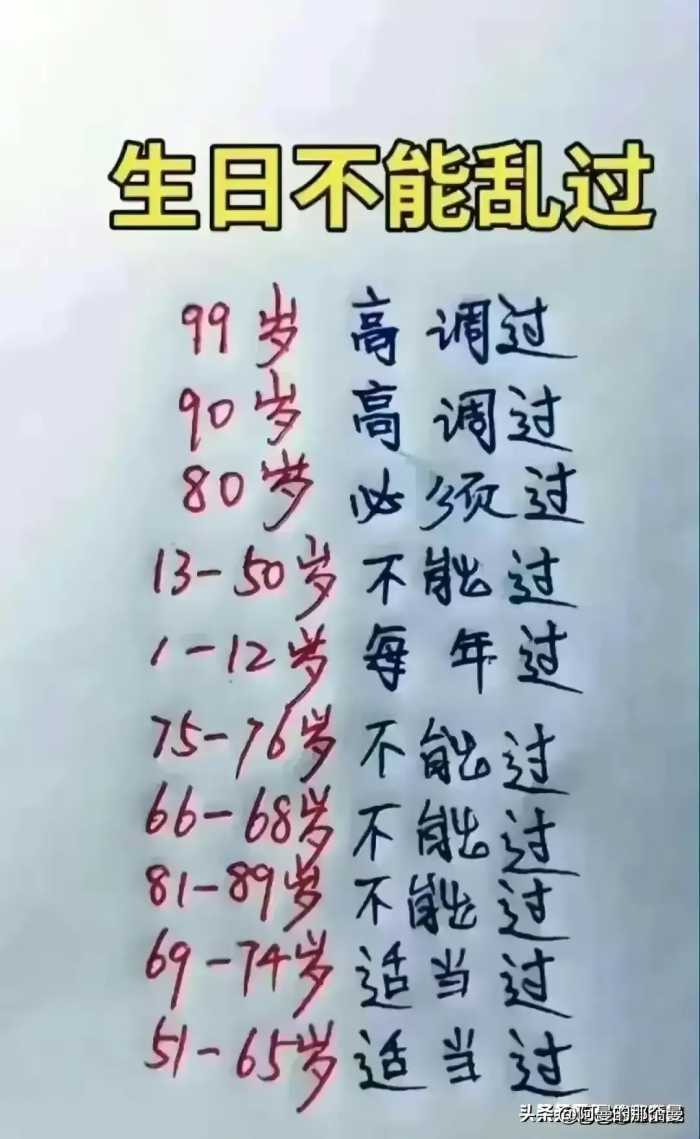 生日不能乱过
99岁 高调过
90岁 高调过
80岁 必须过
13-50岁 不能过
1-12岁 每年过
75-76岁 不能过
66-68岁 不能过
81-89岁 不能过
69-74岁 适当过
51-65岁 适当过
头条 @阿曼的那些曼